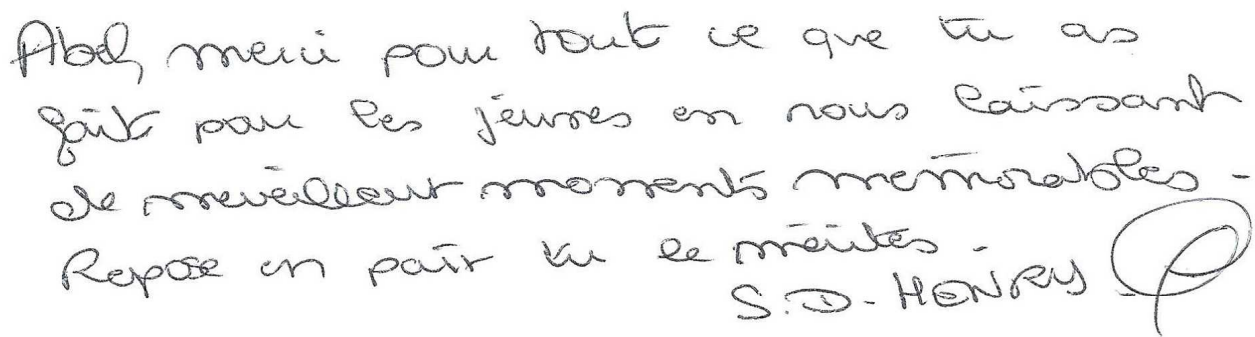 Abel, merci pour tout ce que tu as
fait pour les jeunes en nous laissant
de merveilleux moments mémorables -
Repose en paix tu le mérites -
S.D - HENRY